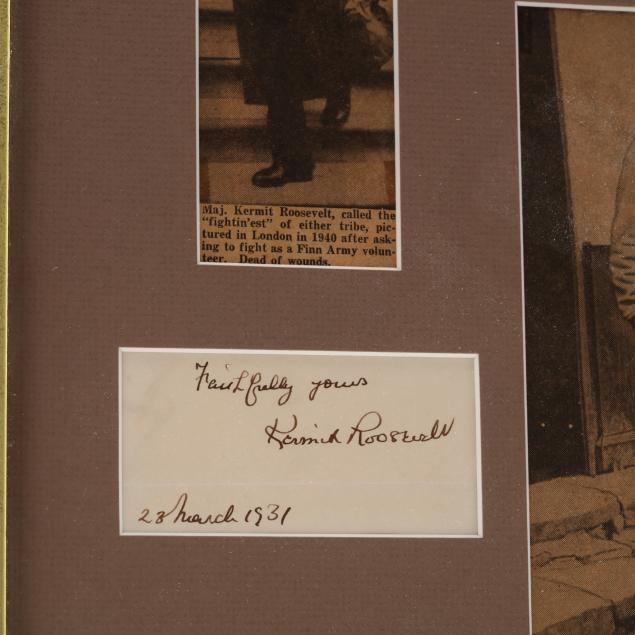 Maj. Kermit Roosevelt, called the
"fightin'est" of either tribe, pic-
tured in London in 1940 after ask-
ing to fight as a Finn Army volun-
teer. Dead of wounds.
Faithfully yours
Kermit Roosevelt
28 March 1931